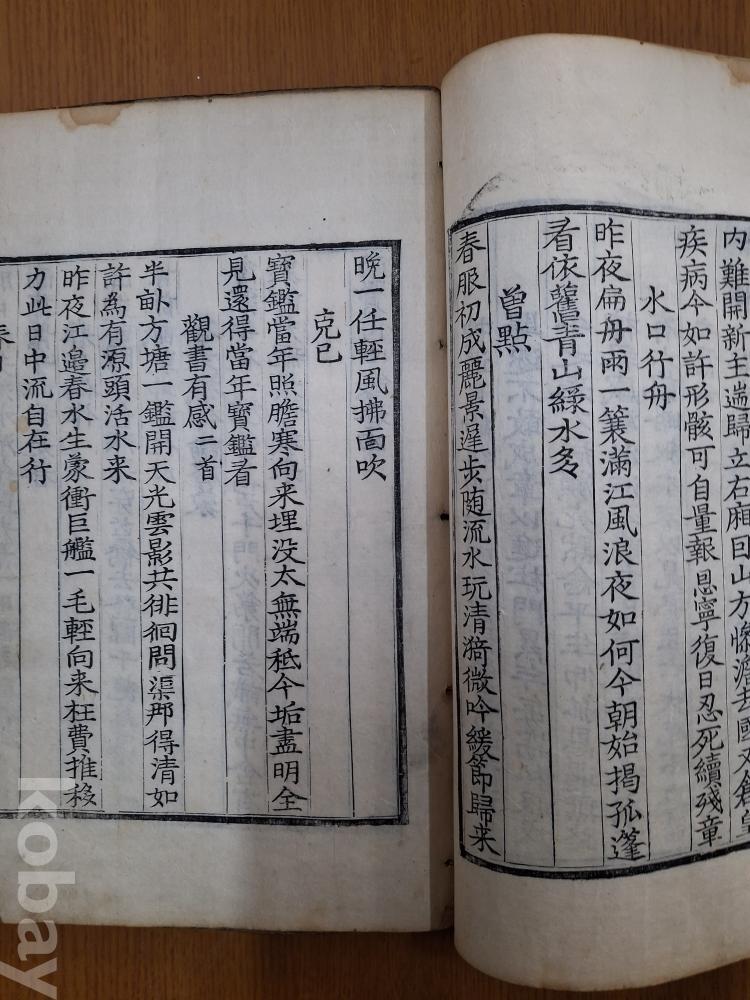 内難開新主遄歸立右廂
疾病今如許形骸可自量報恩寧復日忍死續殘章
水口行舟
昨夜扁舟雨一蓑滿江風浪夜如何今朝始揭孤蓬
看依舊青山綠水多
曾點
春服初成麗景遲步随流水玩清漪微吟緩節歸来
晩一任輕風拂面吹
克己
寶鑑當年照膽寒向来埋没太無端秪今垢盡明全
見還得當年寶鑑看
觀書有感二首
半畝方塘一鑑開天光雲影共徘徊問渠那得清如
許為有源頭活水来
昨夜江邉春水生蒙衝巨艦一毛輕向来枉費推移
力此日中流自在行
kobay